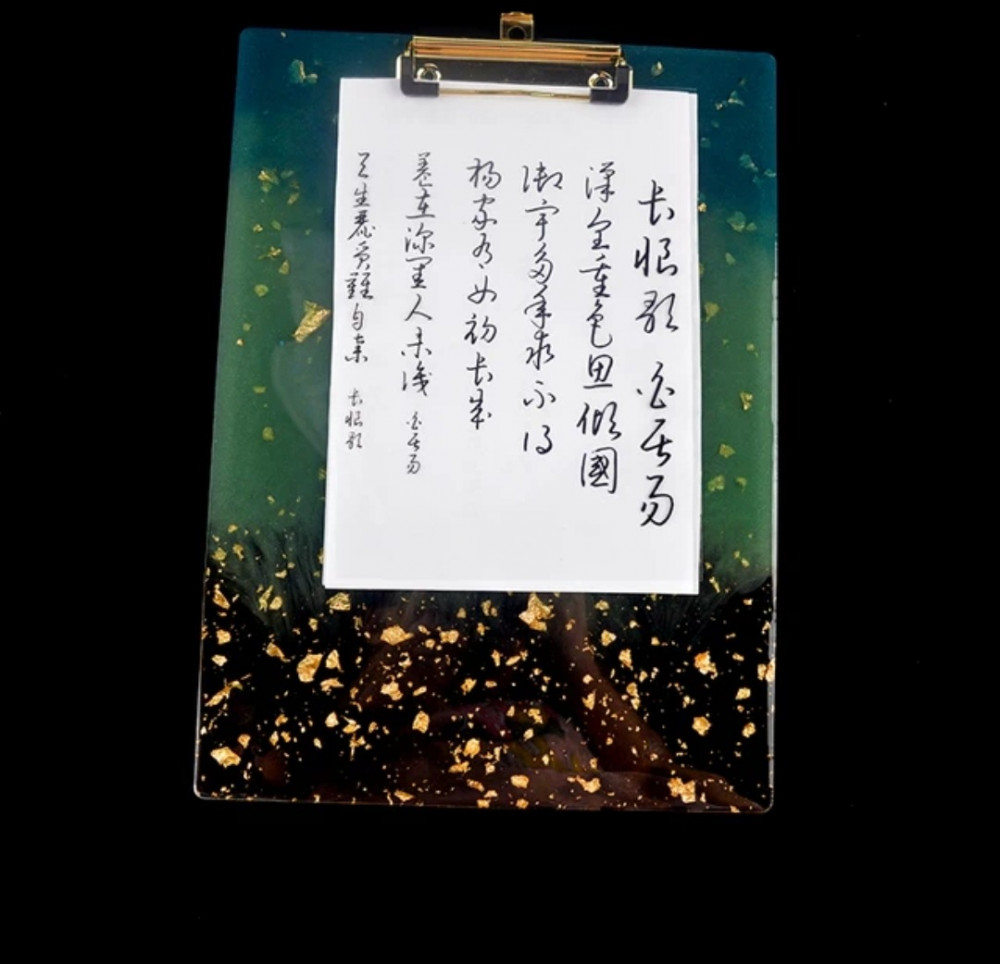 长恨歌 白居易
漢皇重色思傾國
御宇多年求不得
杨家有女初长成
養在深闺人未識 白居易
天生麗質難自棄 长恨歌